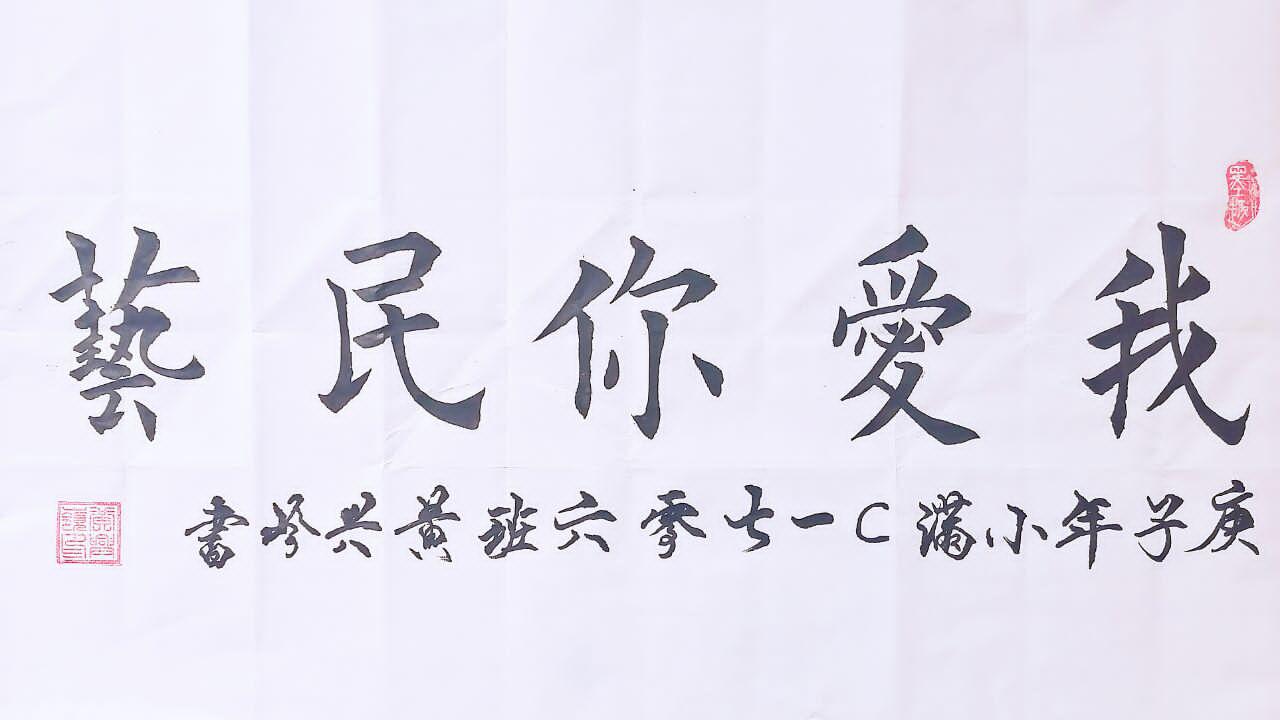 我愛你民藝
庚子年小滿C一七零六班黃興琴書